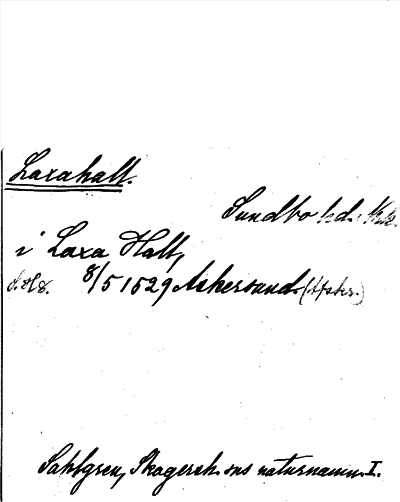 Laxahalt.
Sundbo hd.
i Laxa Halt,
8/5 1529 Askersund (Afskr.)
Sahlgren, Skagersh. sns naturnamn I.